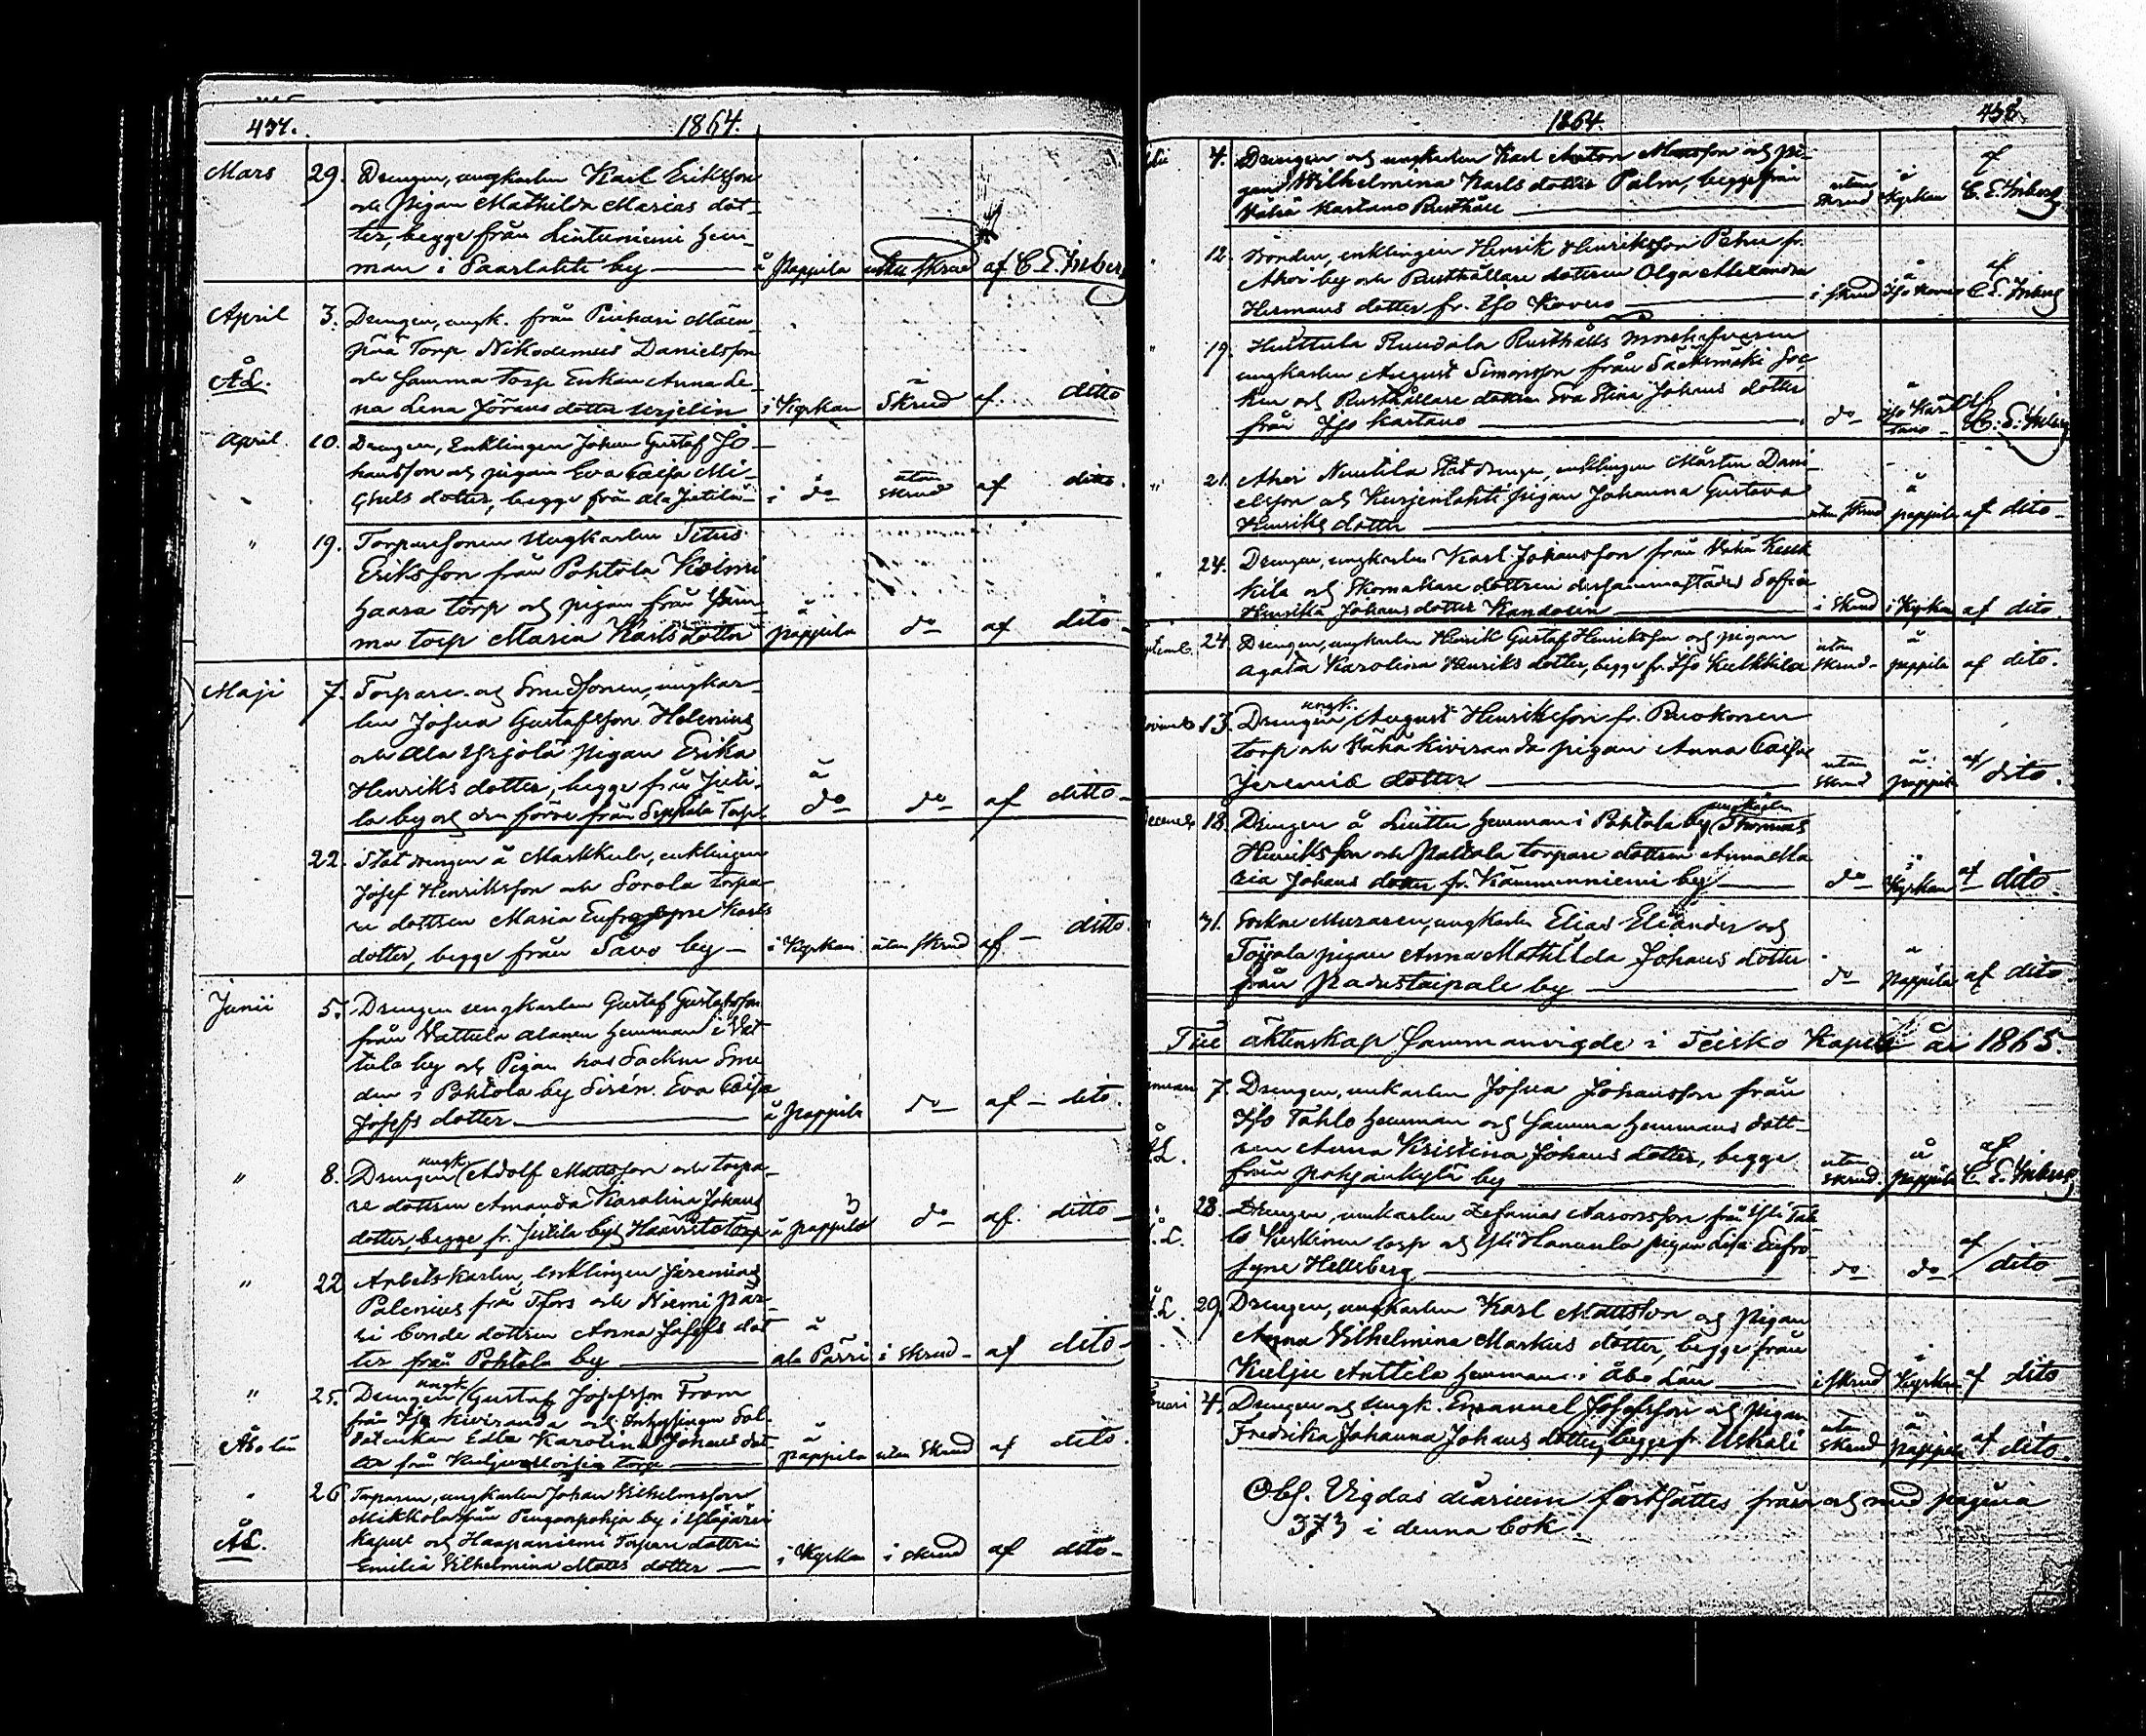 437. 1864.
Mars 29. Drengen, ungkarlen Karl Eriksson
och Pigan Mathilda Marias dot-
ter, begge från Lintuniemi hem-
man i Paarlahti by — å Pappila utan skrud af C. E. Inberg
April 3. Drengen, ungk. från Pinhari Mäen-
pää Torp Nikodemus Danielsson
ÅL. och samma torp Enkan Anna Le-
na Lena Jörans dotter i Kyrkan i Skrud af ditto
April 10. Drengen, Enklingen Johan Gustaf Jo-
hansson och pigan Eva Caisa Mi-
chels dotter, begge från Ala Jutila i do utan skrud af ditto.
" 19. Torparesonen Ungkarlen Titus
Eriksson från Pohtola Koivu
haara torp och pigan från sam-
ma torp Maria Karls dotter å pappila do af dito
Maji 7. Torpare- och Smedsonen, ungkar-
len Josua Gustafsson Helenius
och Ala Yrjölä pigan Erika
Henriks dotter, begge från Juti-
la by och den förre från Seppälä Torp å do do af ditto
22. Stat drengen å Markkula, enklingen
Josef Henriksson och Sorola torpa-
re dottren Maria Eufrosyne Karls
dotter, begge från Savo by — i Kyrkan utan skrud af — ditto.
Junii 5. Drengen ungkarlen Gustaf Gustafsson
från Vattula Alanen hemman i Vat-
tula by och Pigan hos Sockne Sme-
den i Pohtola by Sirén. Eva Caisa
Josefs dotter — å Pappila do af — dito.
" 8. Drengen ungk. Adolf Mattsson och torpa-
re dottren Amanda Karolina Johans
dotter, begge fr. Jutila by å pappila do af. ditto
" 22 Arbetskarlen, Enklingen Jeremias
Palenius från T:fors och Niemi Pär-
ri bonde dottren Anna Josefs dot-
ter från Pohtola by — å ala Pärri i skrud - af dito
" 25. Drengen ungk. Gustaf Josefsson From
från Iso Kiviranda och Inhysingen Sol-
Åbo län datenkan Edla Karolina Johans dot-
ter från torp — å pappila utan skrud af dito.
" 26 Torparen, ungkarlen Johan Vilhelmsson
Mikkola från Pengonpohja by i Ylöjärvi
ÅL. kapell och Haapaniemi Torpare dottren
Emilia Vilhelmina Matts dotter — i Kyrkan i skrud af dito -
1864. 438.
4. Drengen och ungkarlen Karl Anton Mattsson och pi-
gan Wilhelmina Karls dotter Palm, begge från
Vähä Kartano Rusthåll — utan skrud i Kyrkan af C. E. Inberg
" 12. Bonden, enklingen Henrik Henriksson Pehu fr.
Ahoi by och Rusthållare dottren Olga Alexandra
Hermans dotter fr. Iso Kovero — i skrud å Iso Kovero af C. E. Inberg
" 19. Huittula Ruudala Rusthålls
ungkarlen August Simonsson från Sääksmäki Soc-
ken och Rusthållare dottren Eva Stina Johans dotter
från Iso Kartano — do å Iso Kartano af C. E. Inberg
" 21. Ahoi Nuutila Stat drengen, enklingen Mårten Dani-
elsson och Kurjenlahti pigan Johanna Gustava
Henriks dotter — utan skrud å pappila af dito-
" 24. Drengen, ungkarlen Karl Johansson från Vähä Keuk-
kila och Skomakare dottren dersammastädes Sofia
Henrika Johans dotter — i skrud i Kyrkan af dito.
24. Drengen, ungkarlen Henrik Gustaf Henriksson och pigan
Agata Karolina Henriks dotter, begge fr. Iso Kulkkila utan skrud - å pappila af dito.
13. Drengen ungk. August Henriksson fr. Ruokonen
torp och Vähä Kiviranda pigan Anna Caisa
Jeremie dotter — utan skrud å pappila af dito.
18. Drengen å Liutta hemman i Pohtola by ungkarlen Thomas
Henriksson och Pättälä torpare dottren Anna Ma-
ria Johans dotter fr. Kämmenniemi by — do i Kyrkan af dito.
" 31. Sockne Muraren, ungkarlen Elias Eliander och
Toijala pigan Anna Mathilda Johans dotter
från Padustaipale by — do å Pappila af dito
Till äktenskap Sammanvigde i Teisko Kapell år 1865.
7. Drengen, unkarlen Josua Johansson från
Iso Tahlo hemman och samma hemmans dott-
ÅL. ren Anna Kristina Johans dotter, begge
från Pohjankylä by — utan skrud. å pappila af C. E. Inberg
28. Drengen, unkarlen Zefanias Aaronsson från Yli Tah-
ÅL. lo Keskinen torp och Yli Hannula pigan Lisa Eufro-
syne Hellsberg — do do af dito
ÅL. 29. Drengen, ungkarlen Karl Mattsson och Pigan
Anna Vilhelmina Markus dotter, begge från
Kulju Anttila hemman i Åbo Län — i skrud i Kyrkan af dito
4. Drengen och Ungk. Emanuel Josefsson och Pigan
Fredrika Johanna Johans dotter, begge fr. Uskali utan skrud å pappila af dito.
Obs. Vigdas diarium fortsättes från och med pagina
373 i denna bok.